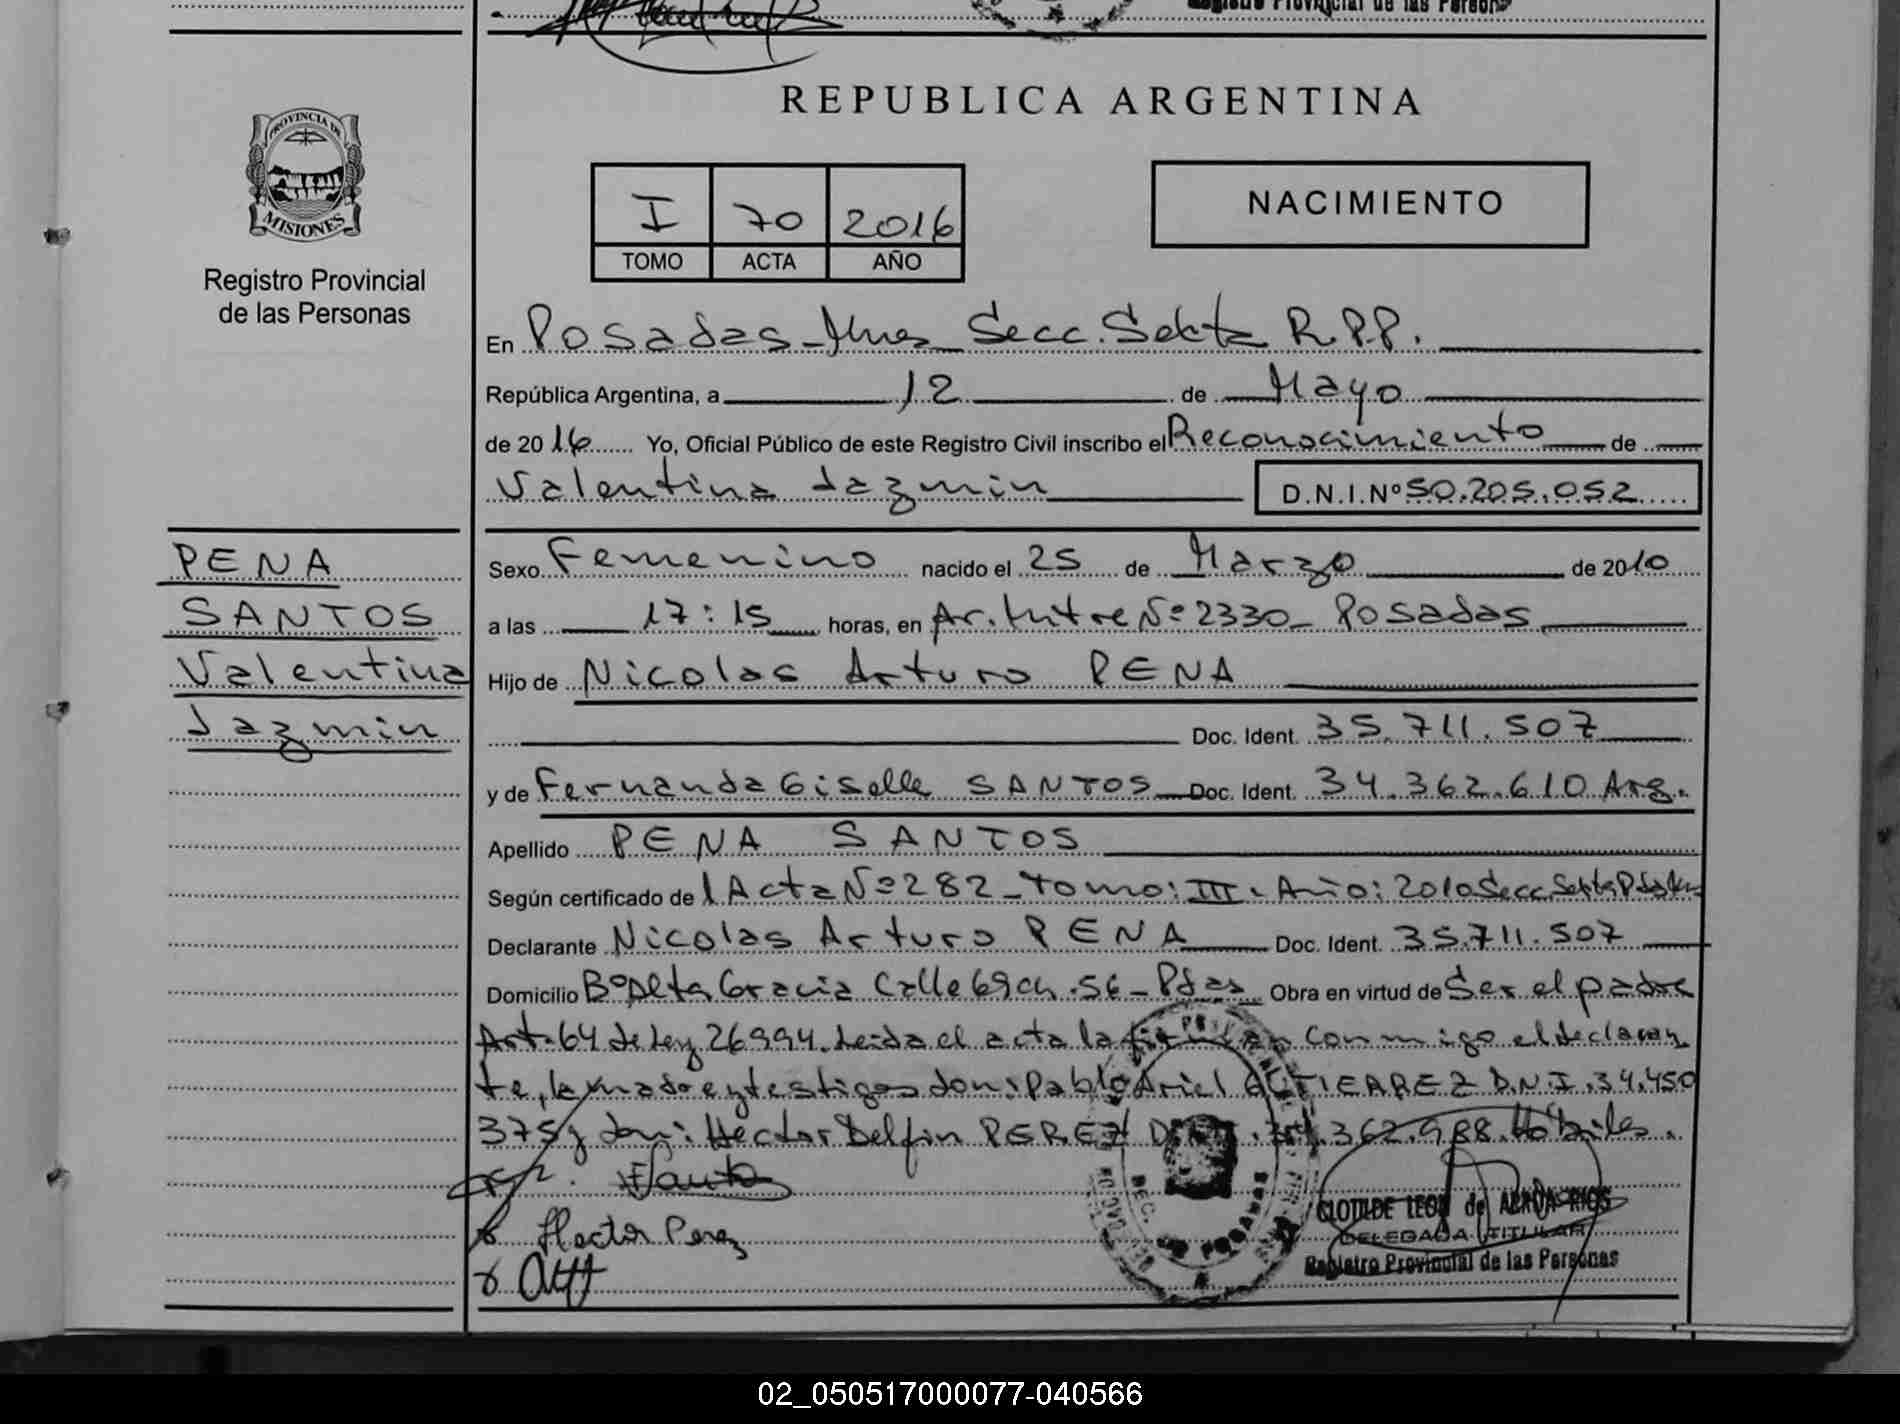 Registro Provincial de las Persona
REPUBLICA ARGENTINA
PROVINCIA DE
MISIONES
Registro Provincial
de las Personas
I 70 2016
TOMO ACTA AÑO
NACIMIENTO
En Posadas - Mnes Secc. Sexta R.P.P.
República Argentina, a 12 de Mayo
de 2016 Yo, Oficial Público de este Registro Civil inscribo el Reconocimiento de
Valentina Jazmin D.N.I.Nº 50.205.052
PENA
SANTOS
Valentina
Jazmin
Sexo Femenino nacido el 25 de Marzo de 2010
a las 17:15 horas, en Av. Mitre Nº 2330 - Posadas
Hijo de Nicolas Arturo PENA
Doc. Ident. 35.711.507
y de Fernanda Giselle SANTOS Doc. Ident. 34.362.610 Arg.
Apellido PENA SANTOS
Según certificado de l Acta Nº 282 - Tomo: III - Año: 2010 Secc. Sexta
Declarante Nicolas Arturo PENA Doc. Ident. 35.711.507
Domicilio Bº Alta Gracia Calle 69 ch. 56 - Pdas Obra en virtud de Ser el padre
Art. 64 de Ley 26994. Leida el acta la firman conmigo el declaran
te, la madre y testigos don: Pablo Ariel GUTIERREZ D.N.I. 34.450
375 y don: Hector Delfin PEREZ D.N.I. 362.988. Habiles.
Hector Perez
CLOTILDE LEON de
DELEGADA TITULAR
Registro Provincial de las Personas
02_050517000077-040566